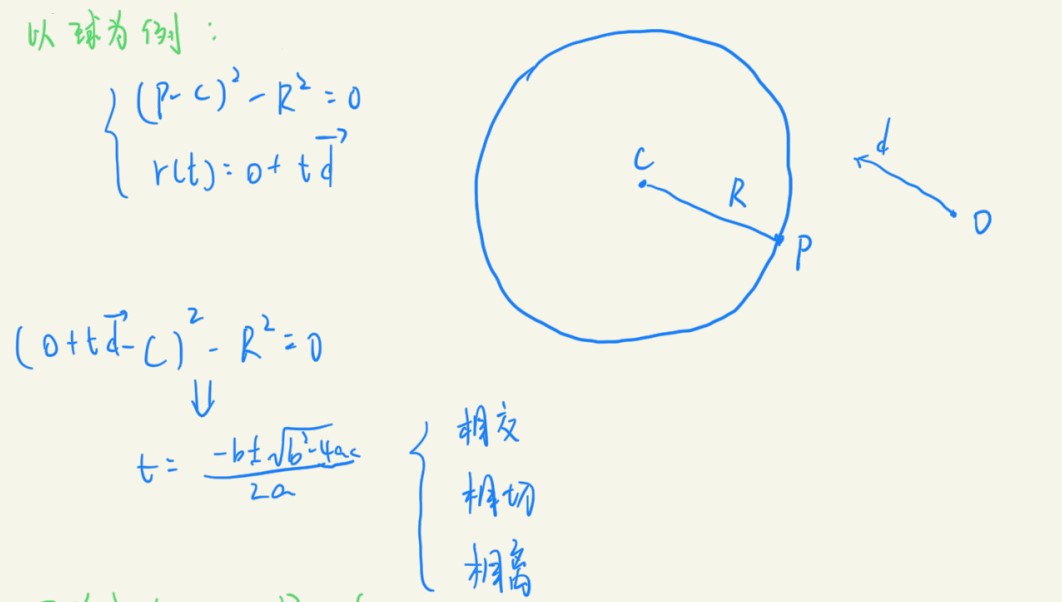 以球为例：
(P-C)² - R² = 0
r(t) = o + t d⃗
C
R
P
d
O
(o + t d⃗ - C)² - R² = 0
⇓
t = (-b ± √(b²-4ac)) / 2a
相交
相切
相离